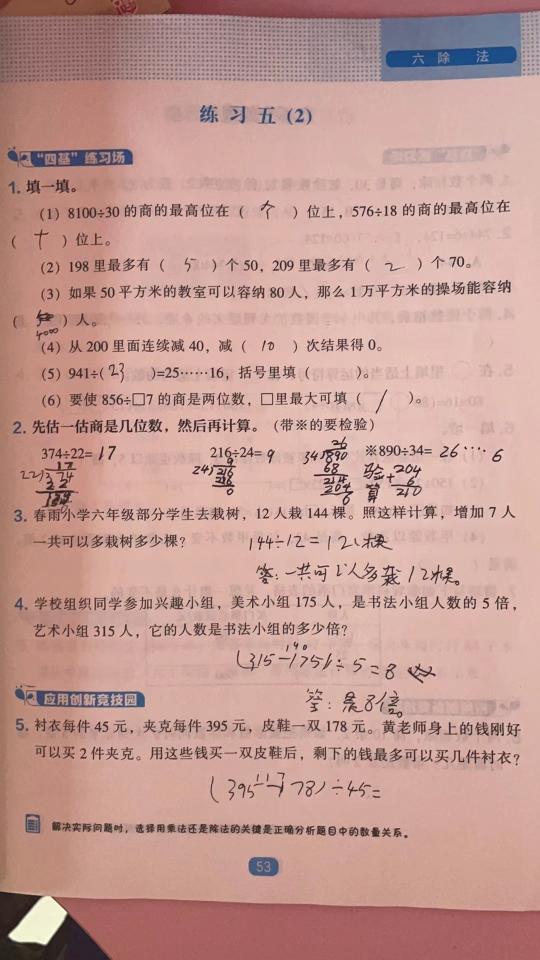 六 除 法
练 习 五 (2)
“四基”练习场
1. 填一填。
(1) 8100÷30 的商的最高位在 ( 个 ) 位上，576÷18 的商的最高位在
( 十 ) 位上。
(2) 198 里最多有 ( 5 ) 个 50，209 里最多有 ( 2 ) 个 70。
(3) 如果 50 平方米的教室可以容纳 80 人，那么 1 万平方米的操场能容纳
( ) 人。
4000
(4) 从 200 里面连续减 40，减 ( 10 ) 次结果得 0。
(5) 941÷( 23 )=25……16，括号里填 ( )。
(6) 要使 856÷□7 的商是两位数，□里最大可填 ( / )。
2. 先估一估商是几位数，然后再计算。(带※的要检验)
374÷22= 17 216÷24= 9 ※890÷34= 26 …… 6
17
22 374
22
9
24 216
216
0
26
34 890
68
214
204
6
验算
204
+ 6
210
3. 春雨小学六年级部分学生去栽树，12 人栽 144 棵。照这样计算，增加 7 人
一共可以多栽树多少棵？ 144÷12=12棵
答：一共可以多栽12棵。
4. 学校组织同学参加兴趣小组，美术小组 175 人，是书法小组人数的 5 倍，
艺术小组 315 人，它的人数是书法小组的多少倍？
140
(315-175)÷5=8
答：是8倍。
应用创新竞技园
5. 衬衣每件 45 元，夹克每件 395 元，皮鞋一双 178 元。黄老师身上的钱刚好
可以买 2 件夹克。用这些钱买一双皮鞋后，剩下的钱最多可以买几件衬衣？
117
(395-178)÷45=
解决实际问题时，选择用乘法还是除法的关键是正确分析题目中的数量关系。
53